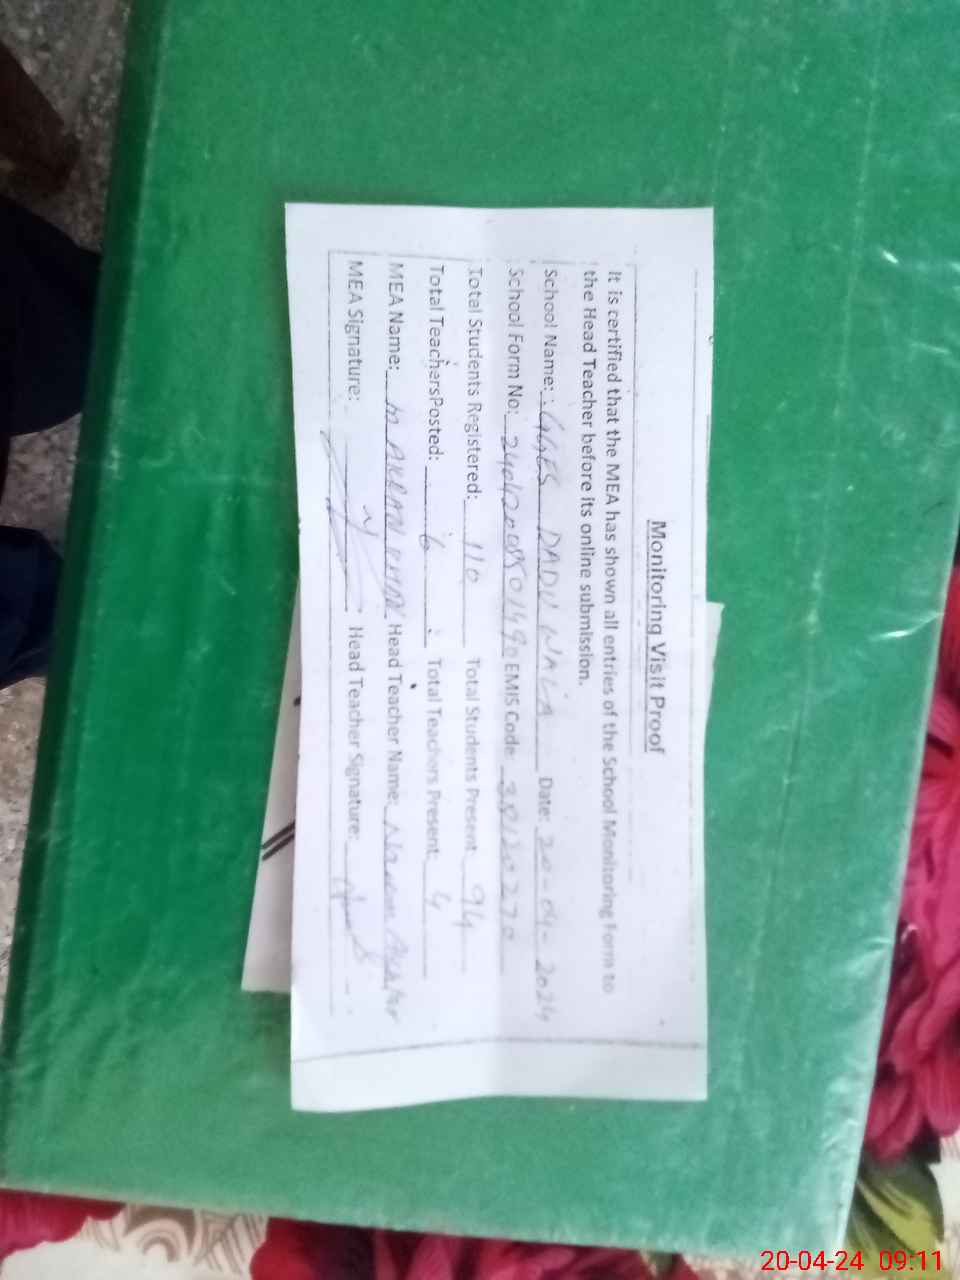 Monitoring Visit Proof
It is certified that the MEA has shown all entries of the School Monitoring Form to
the Head Teacher before its online submission.
School Name: GGES DADU WALA Date: 20-04-2024
School Form No: EMIS Code: 38120270
Total Students Registered: 110 Total Students Present: 94
Total TeachersPosted: 6 Total Teachers Present: 4
MEA Name: M AKRAM KHAN Head Teacher Name: Akhtar
MEA Signature: Head Teacher Signature:
20-04-24 09:11